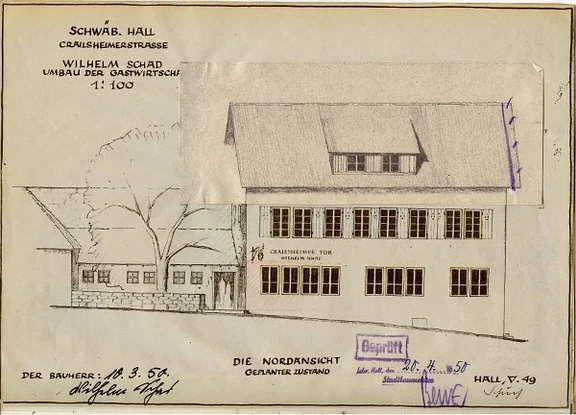 SCHWÄB. HALL
CRAILSHEIMERSTRASSE
WILHELM SCHAD
UMBAU DER GASTWIRTSCHA
1:100
CRAILSHEIMER TOR
WILHELM SCHAD
DIE NORDANSICHT
GEPLANTER ZUSTAND
DER BAUHERR: 10.3.50.
Wilhelm Schad
Geprüft
Schw. Hall, den 20. 4. 1950
Stadtbauamt
HALL, V. 49